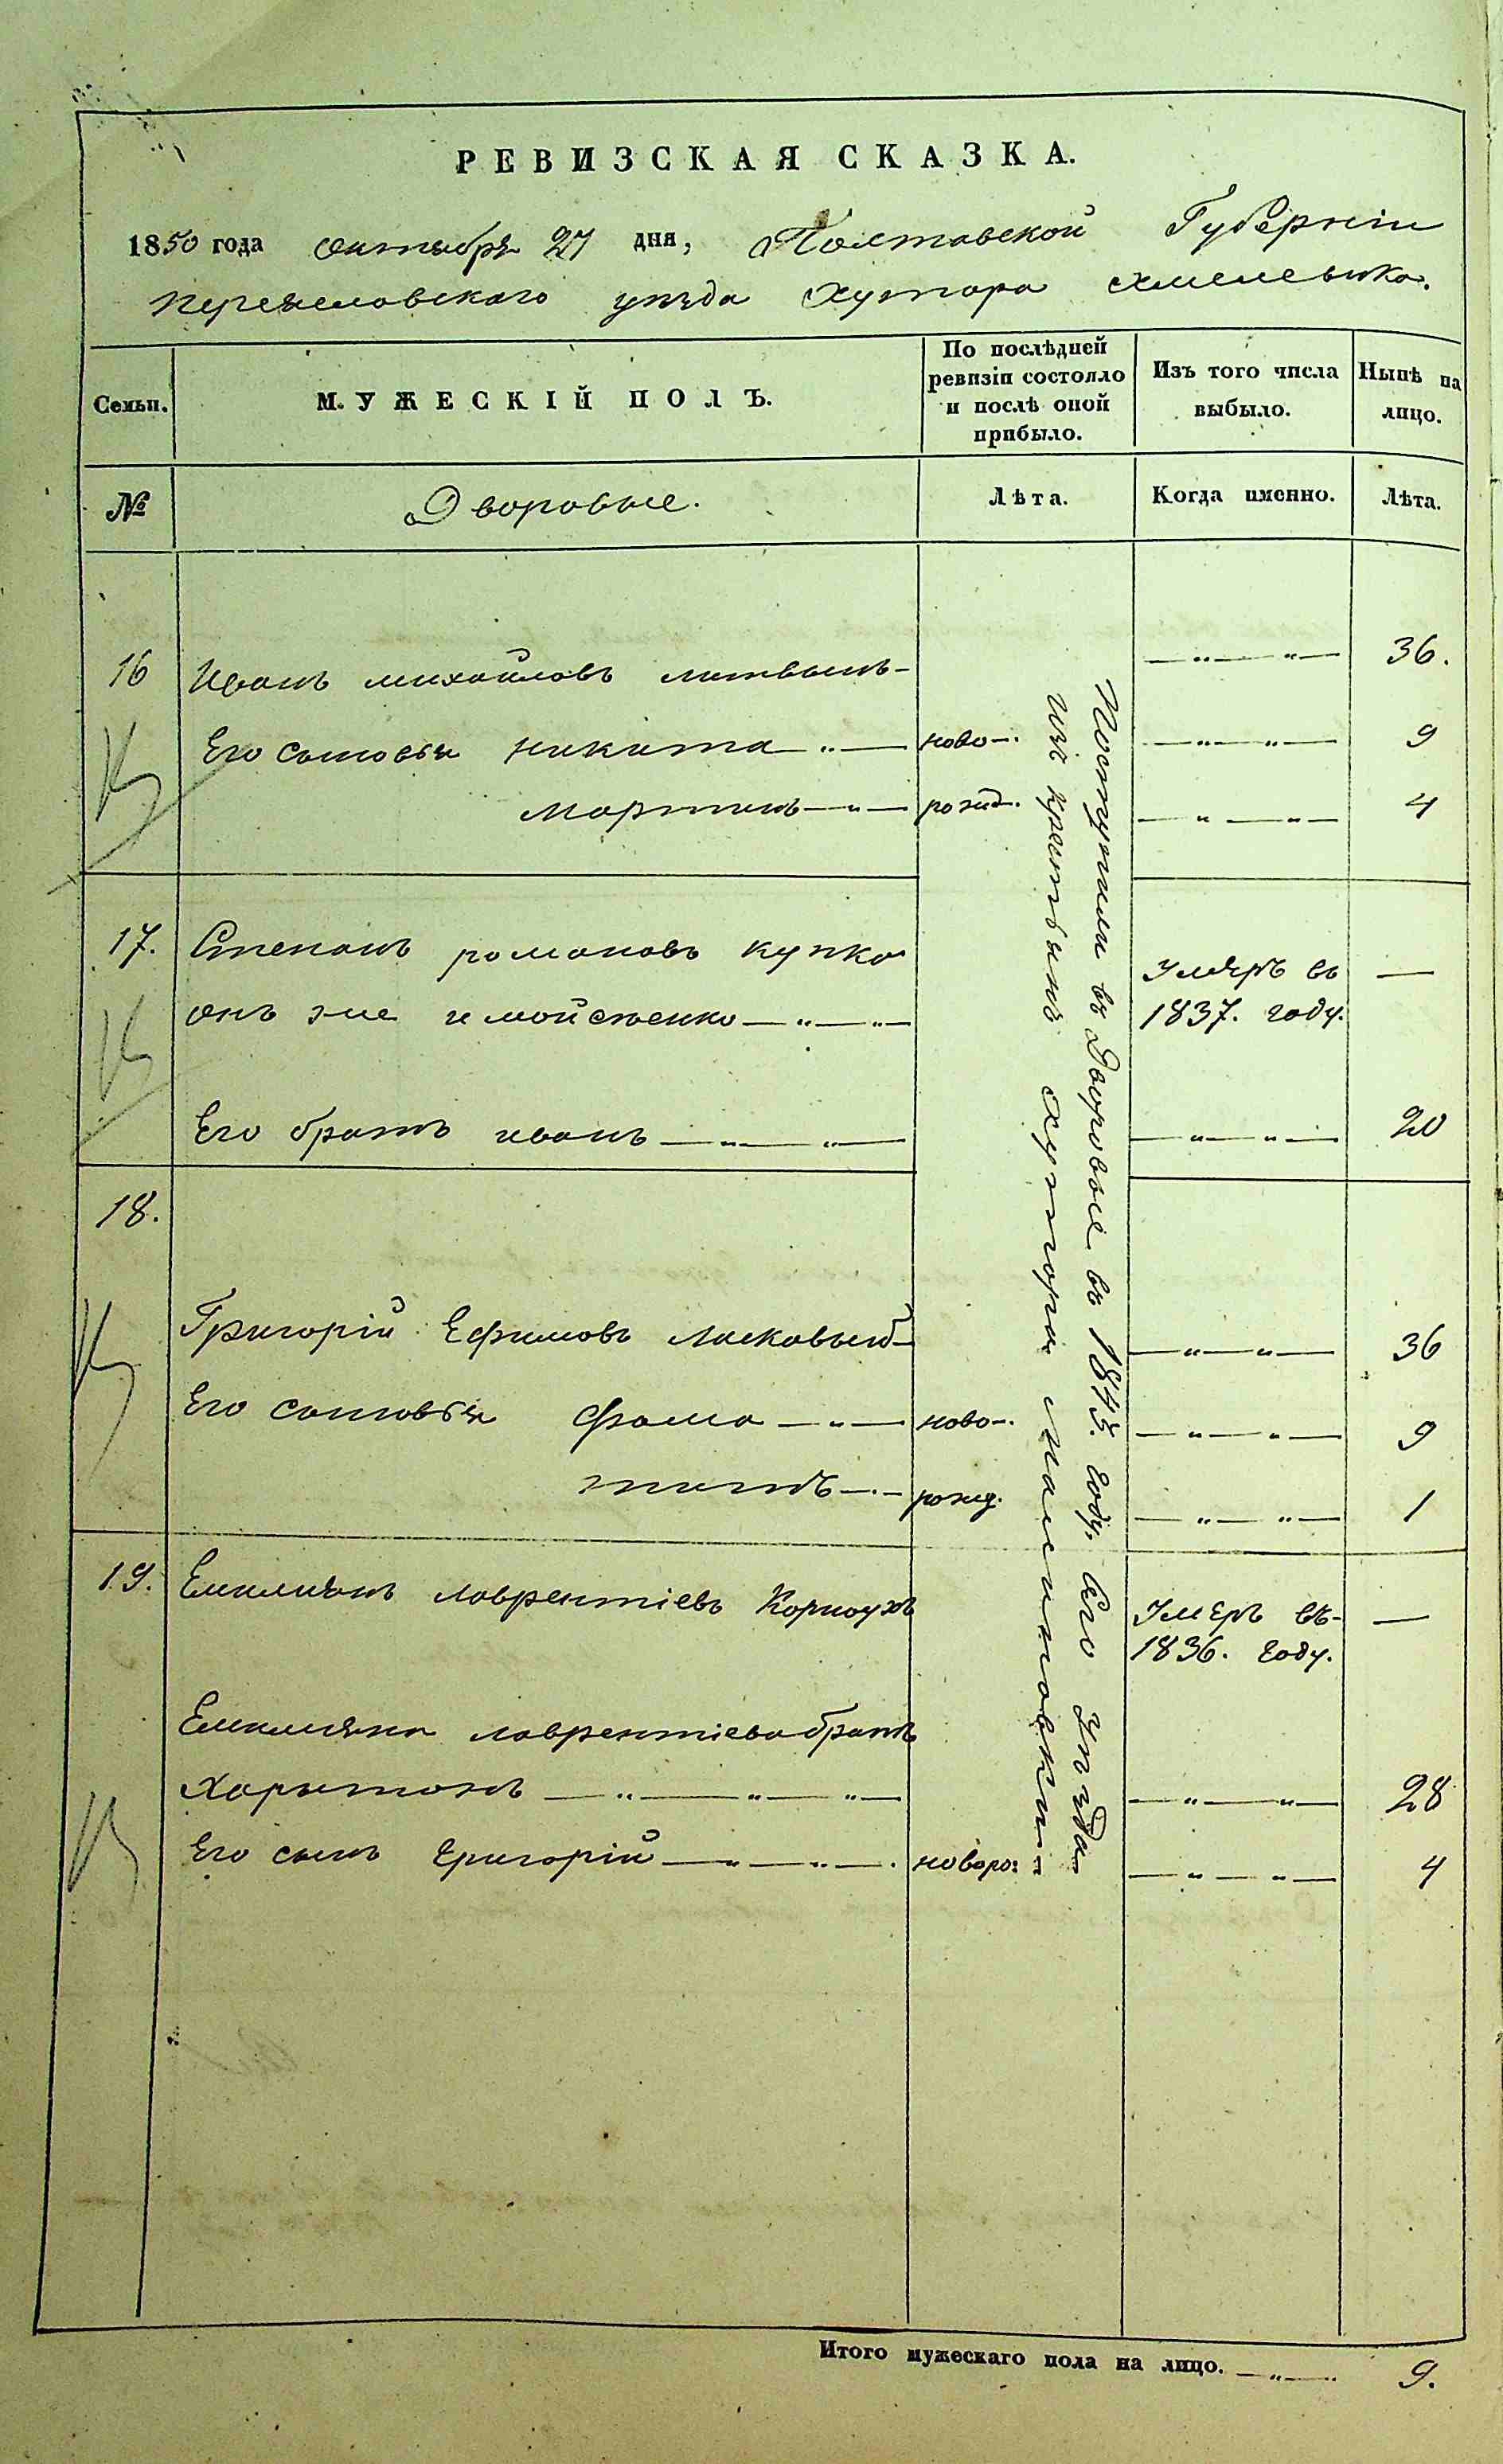 РЕВИЗСКАЯ СКАЗКА.
1850 года октября 27 дня, Полтавской Губерніи
Переяславского уѣзда Хутора Хмелевика.
Семьи.
МУЖЕСКІЙ ПОЛЪ.
По послѣдней
ревизіи состояло
и послѣ оной
прибыло.
Изъ того числа
выбыло.
Нынѣ на
лицо.
№
Дворовые.
Лѣта.
Когда именно.
Лѣта.
16 Иванъ михайловъ литвинъ — — „ — „ — 36.
Его сыновья никита — „ — ново-. — „ — „ — 9
мартинъ — „ — рожд. — „ — „ — 4
17. Степанъ романовъ купко Умеръ въ —
онъ же и мойсѣенко — „ — „ — 1837. году.
Его братъ иванъ — „ — „ — — „ — „ — 20
18.
Григорій Ефимовъ Ласкавый — — „ — „ — 36
Его сыновья фома — „ — ново-. — „ — „ — 9
титъ — „ — рожд. — „ — „ — 1
19. Емилиянъ лаврентіевъ Корноухъ Умеръ въ — —
1836. году.
Емилияна лаврентіева братъ
Харитонъ — „ — „ — „ — — „ — „ — 28
Его сынъ григорій — „ — „ — новоро: — „ — „ — 4
Поступили въ Дворовые въ 1845. году. Сего уѣзда
изъ крестьянъ хутора
Итого мужескаго пола на лицо. — „ — 9.